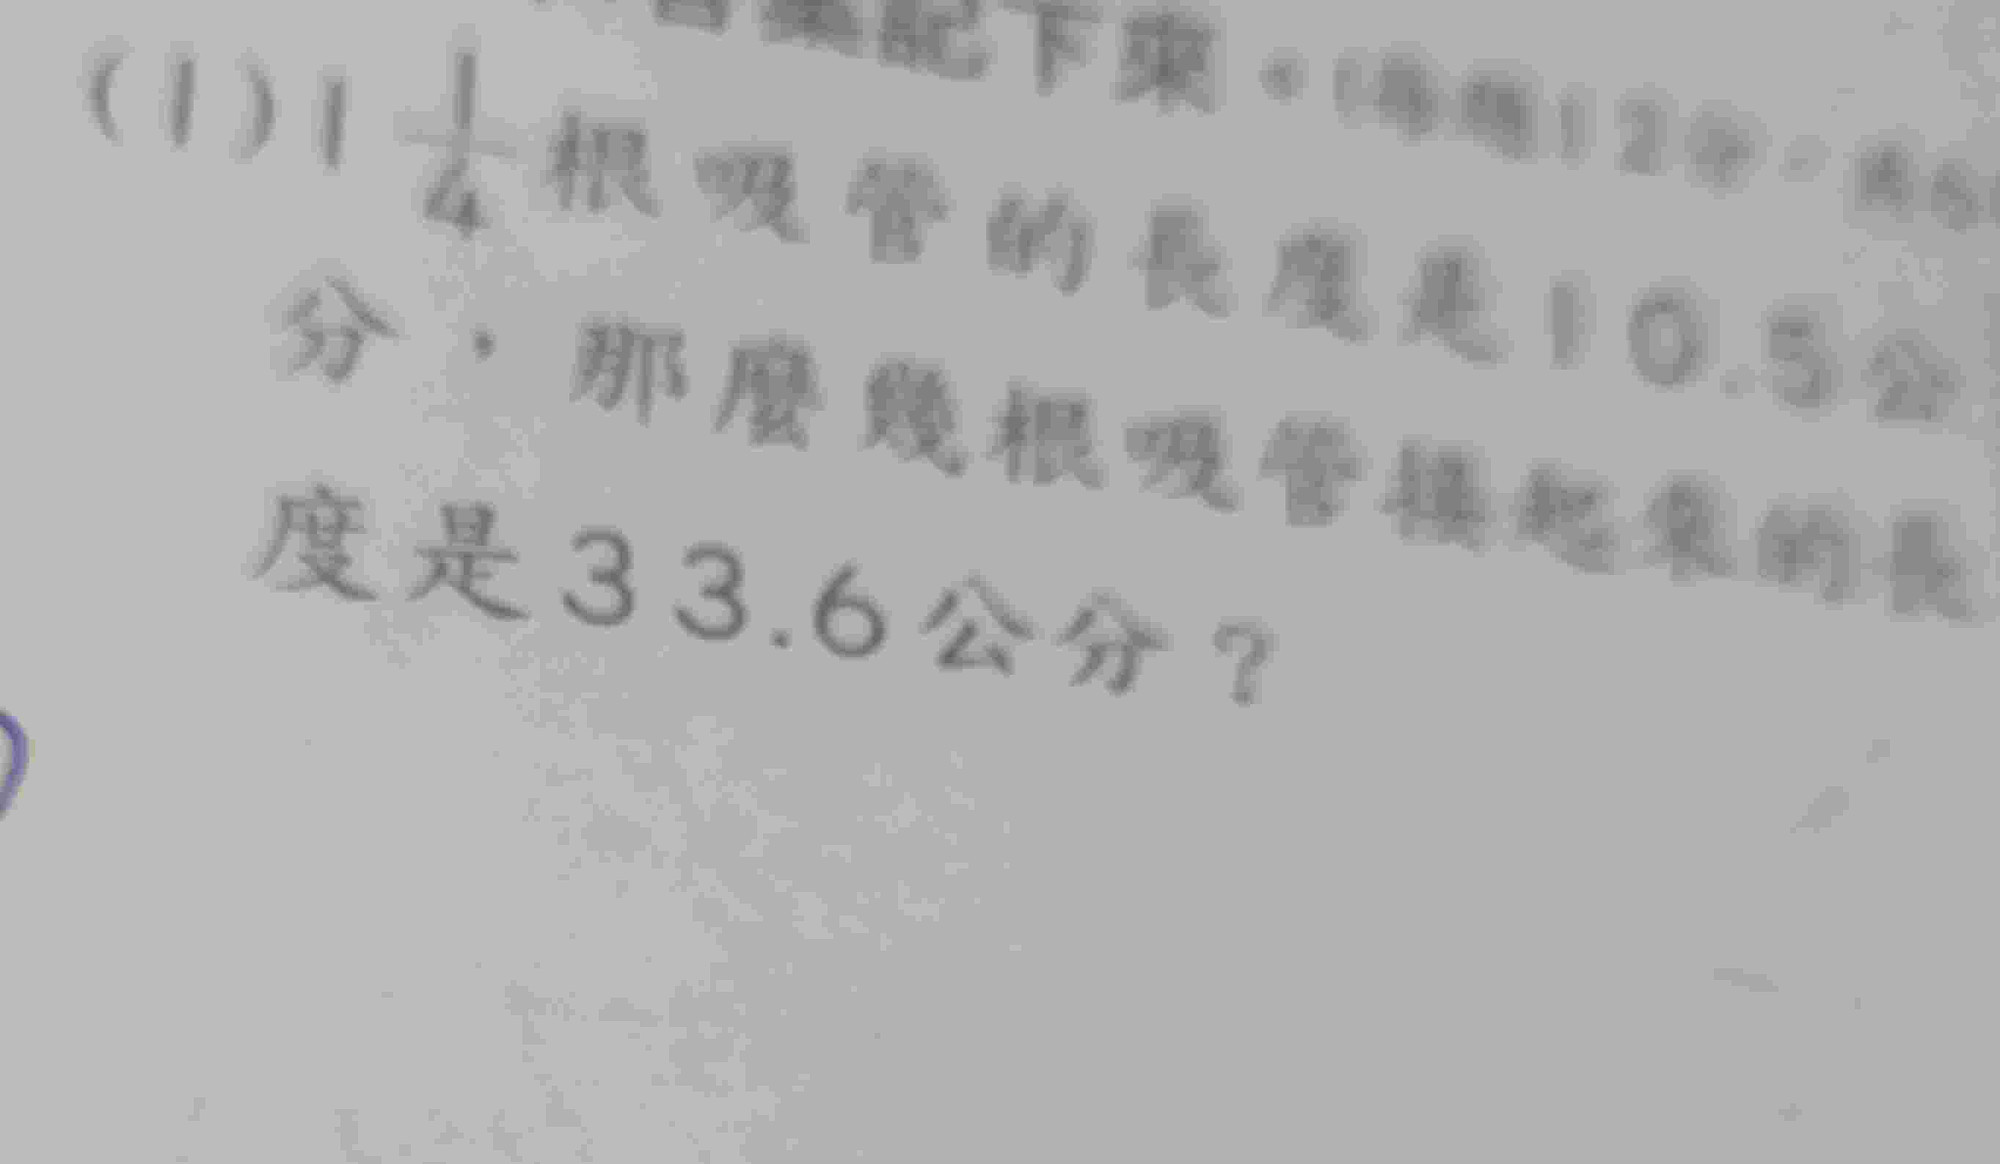 記下來。
(1) 1 1/4 根吸管的長度是10.5公
分，那麼幾根吸管接起來的長
度是33.6公分？